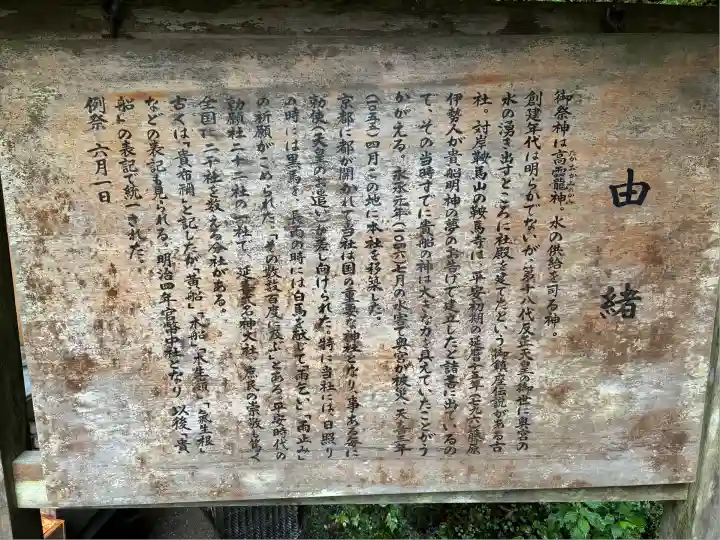 由緒
御祭神は高龗神。水の供給を司る神。
たかおかみのかみ
創建年代は明らかでないが、第十八代反正天皇の御世に奥宮の
水の湧き出すところに社殿を建てたという御鎮座伝説がある古
社。対岸鞍馬山の鞍馬寺は、平安初期の延暦十五年(七九六)藤原
伊勢人が貴船明神の夢のお告げで建立したと諸書に出ているの
で、その当時すでに貴船の神は大きな力を具えていたことがう
かがえる。永承元年(一〇四六)七月の水害で奥宮が被災、天喜三年
(一〇五五)四月この地に本社を移築した。
京都に都が開かれて当社は国の重要な神社となり、事ある毎に
勅使(天皇のお遣い)が差し向けられた。特に当社には、日照り
の時には黒馬を、長雨の時には白馬を献じて「雨乞い」「雨止み」
の祈願がこめられた。「その数数百度に及ぶ」とある。平安時代の
勅願社二十二社の一社で、延喜式名神大社。
全国に二千社を数える分社がある。
古くは「貴布禰」と記したが「黄船」「木船」「木生嶺」「氣生根」
などの表記も見られる。明治四年官幣中社となり、以後「貴
船」の表記で統一された。
例祭 六月一日